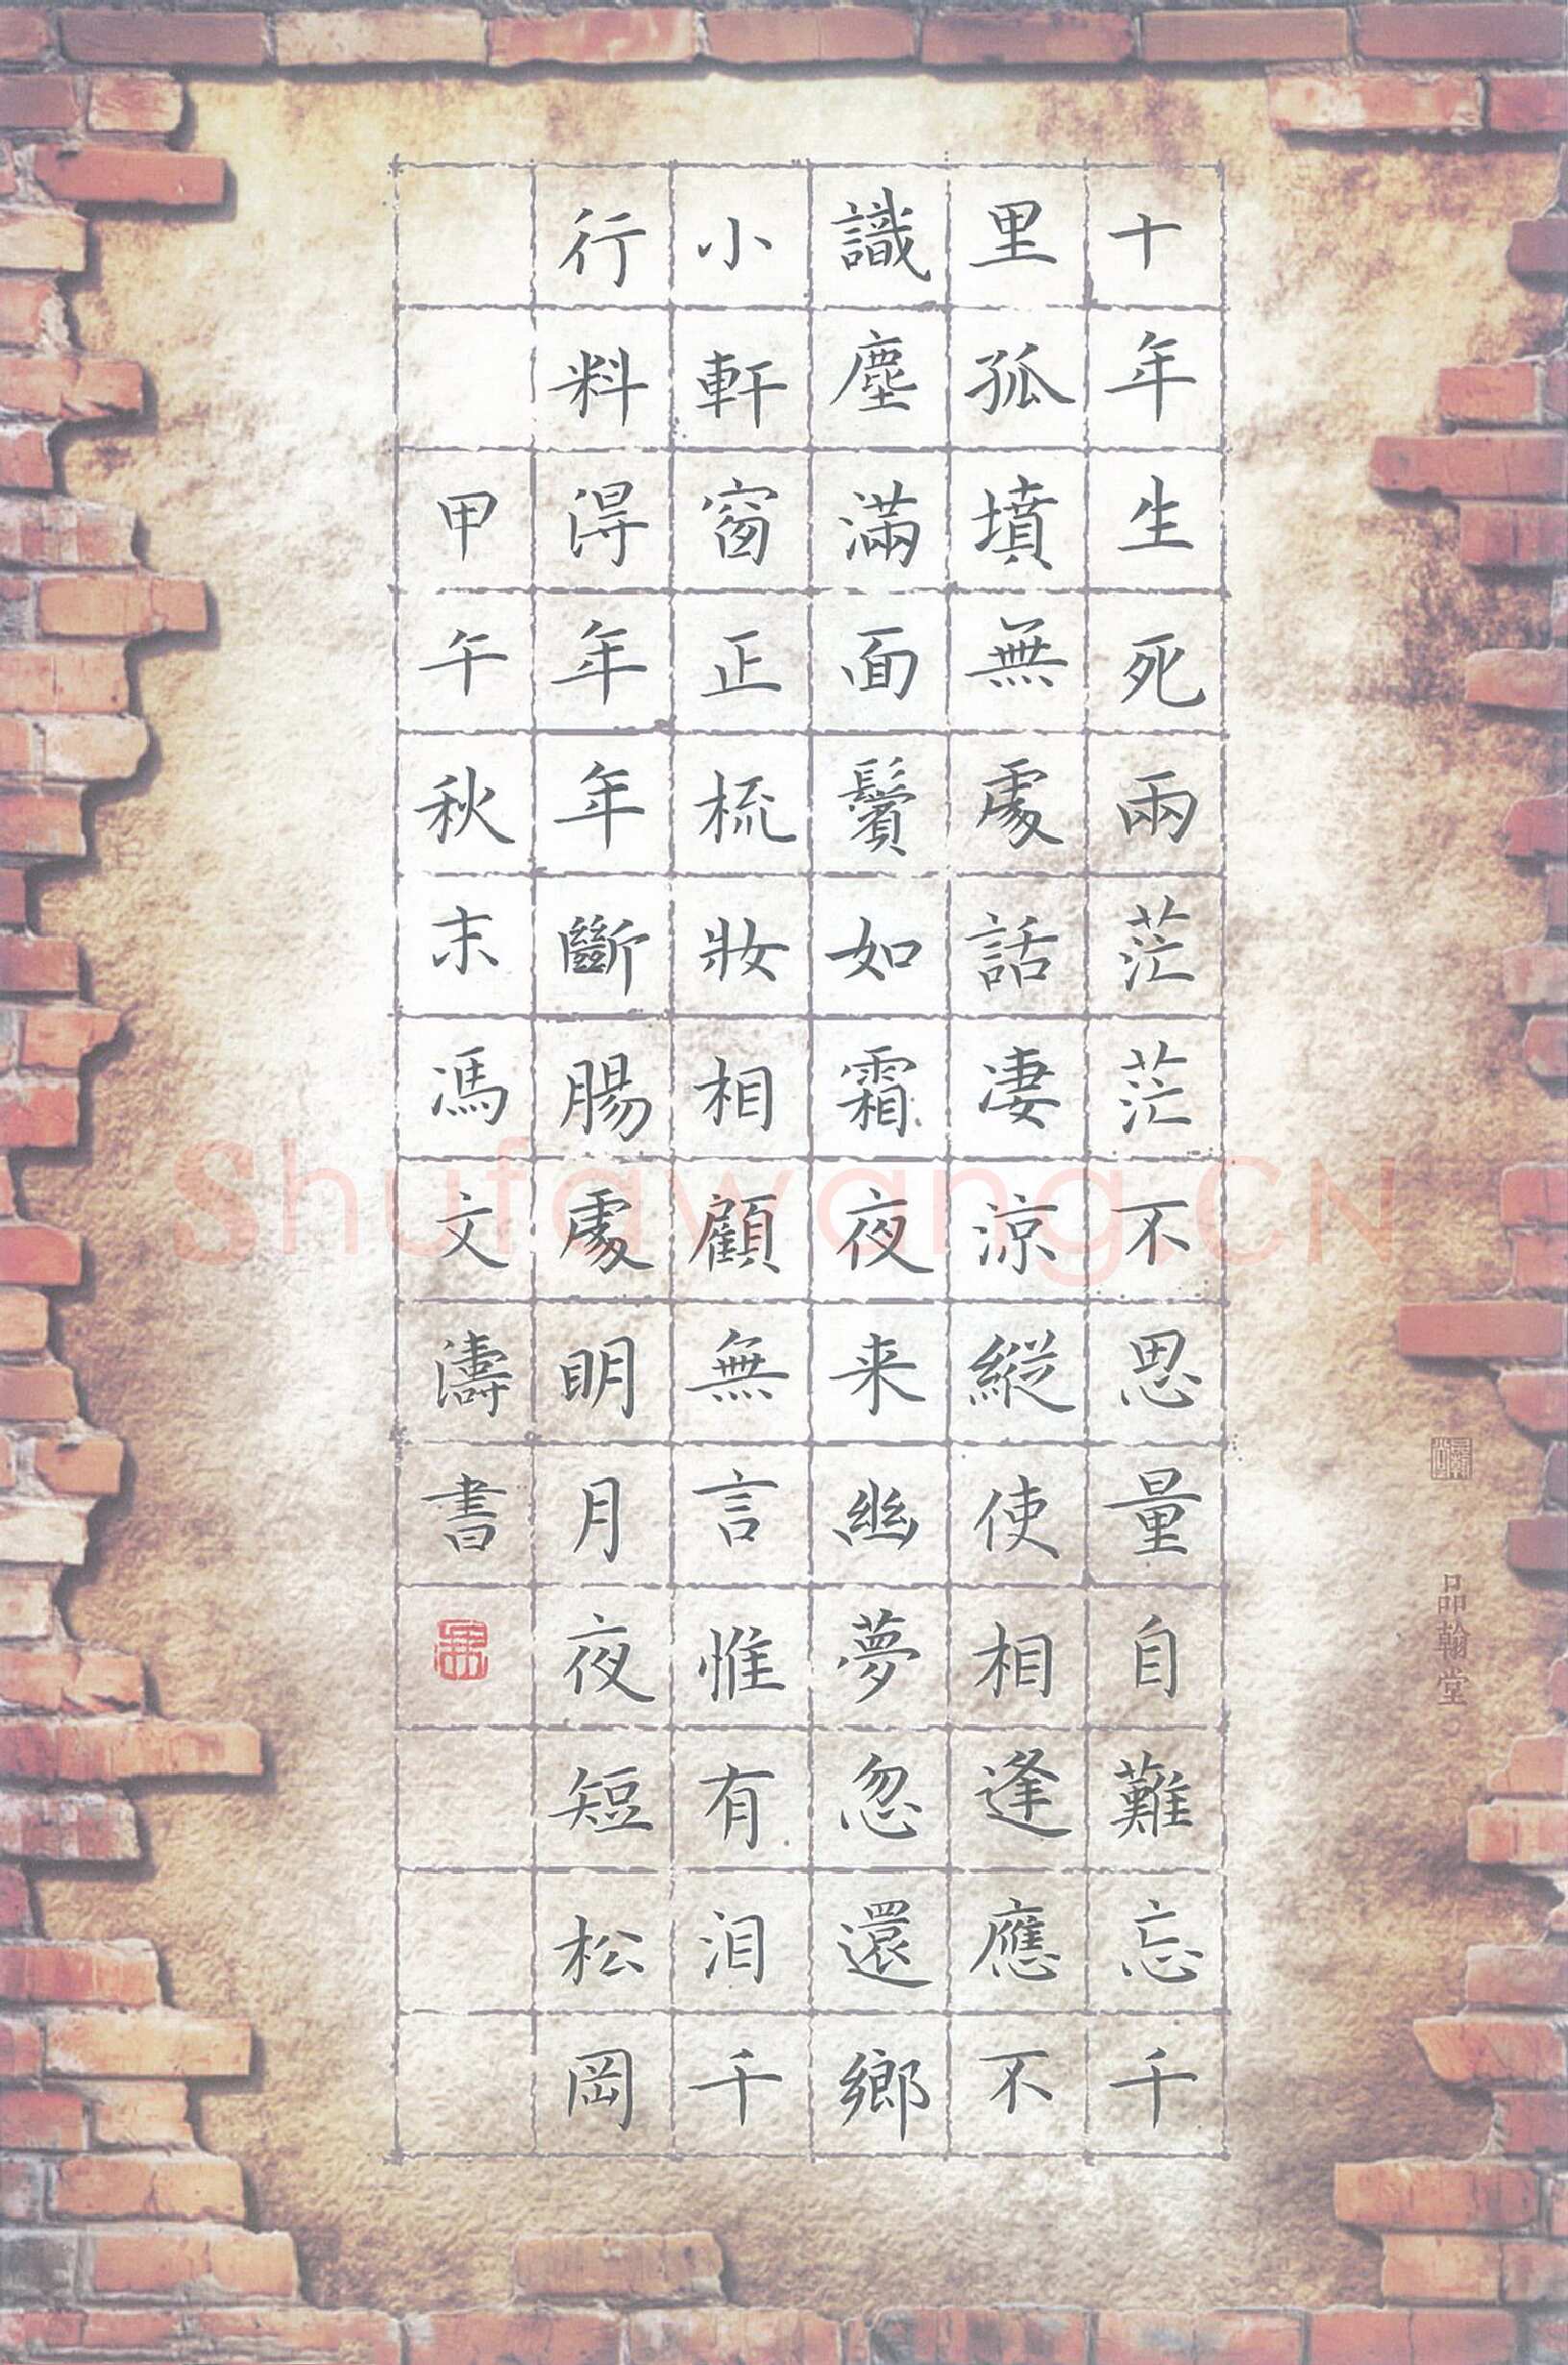 十年生死兩茫茫不思量自難忘千
里孤墳無處話淒涼縱使相逢應不
識塵滿面鬢如霜夜来幽夢忽還鄉
小軒窗正梳妝相顧無言惟有泪千
行料得年年斷腸處明月夜短松岡
甲午秋末馮文濤書
品翰堂
Shufawang.CN